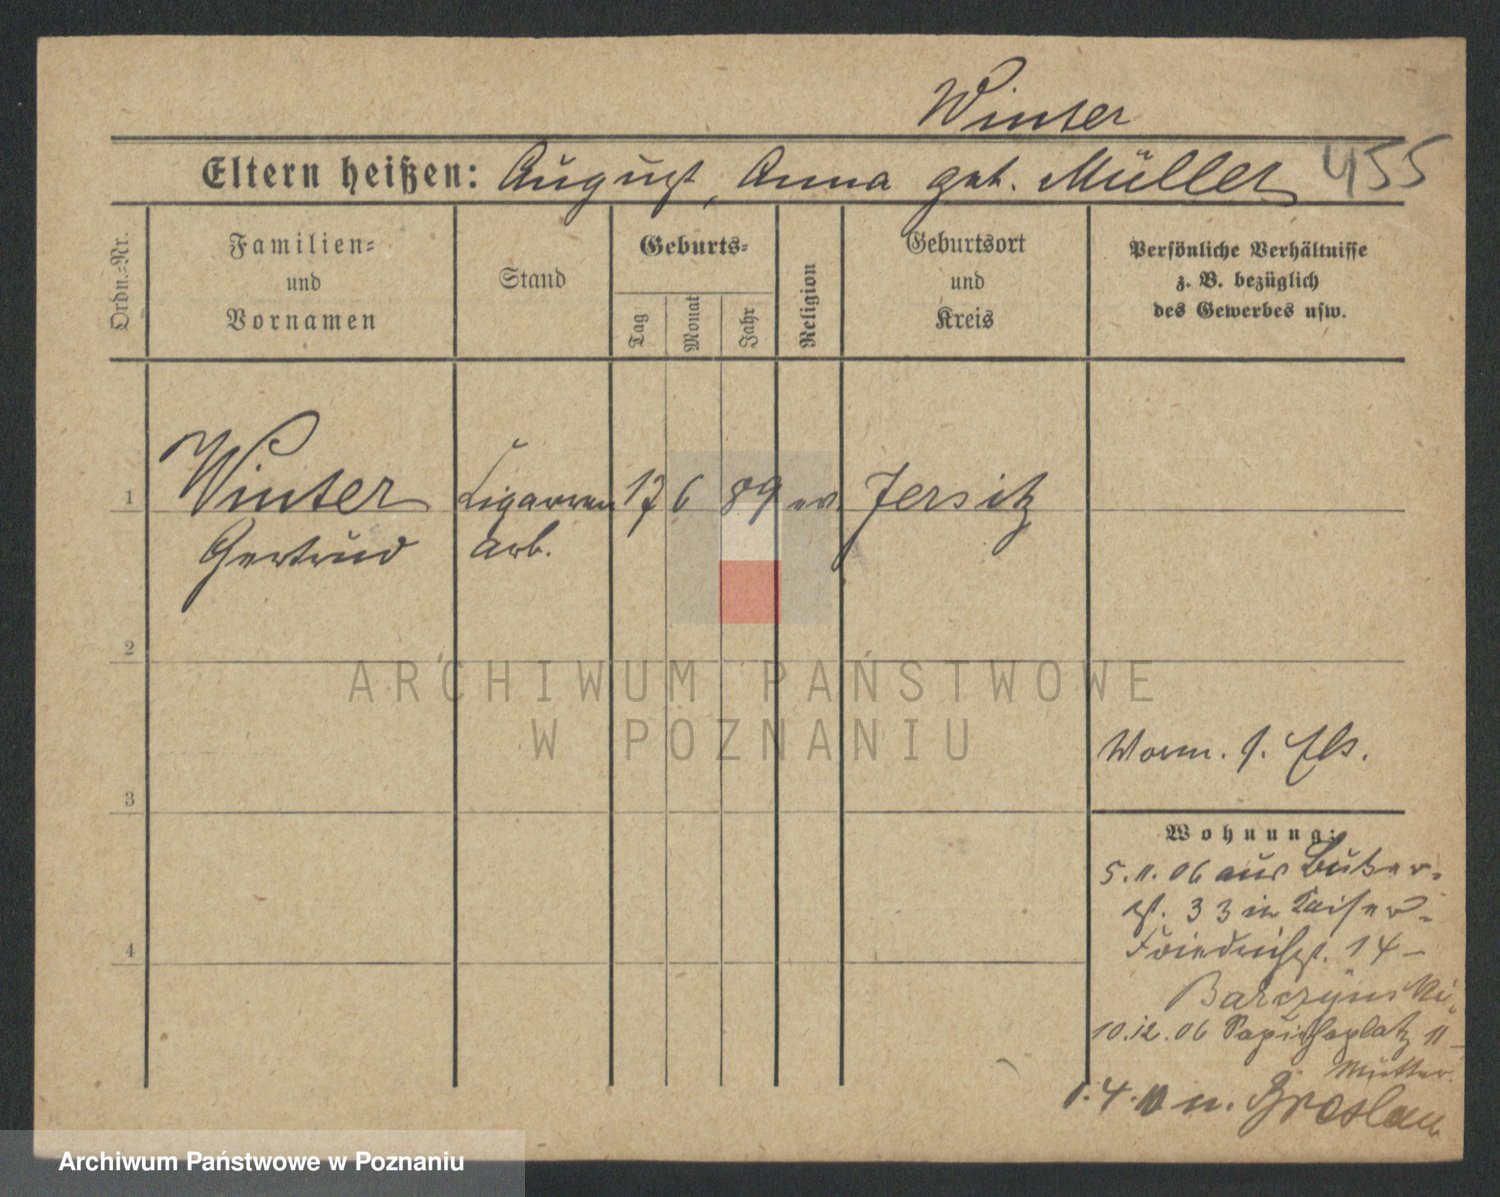 Winter
Eltern heißen: August, Anna geb. Müller 455
Ordn.-Nr.
Familien-
und
Vornamen
Stand
Geburts-
Tag
Monat
Jahr
Religion
Geburtsort
und
Kreis
Persönliche Verhältnisse
z. B. bezüglich
des Gewerbes usw.
1
Winter
Gertrud
Cigarren
arb.
17
6
89
ev.
Jersitz
2
3
4
Wohnung:
5.11.06 aus Buker-
st. 33 in Kaiser-
Friedrichst. 14 -
Barczynski
10.12.06 Sapiehaplatz 11 -
Mutter.
1.4.10 n. Breslau
ARCHIWUM PAŃSTWOWE
W POZNANIU
Archiwum Państwowe w Poznaniu